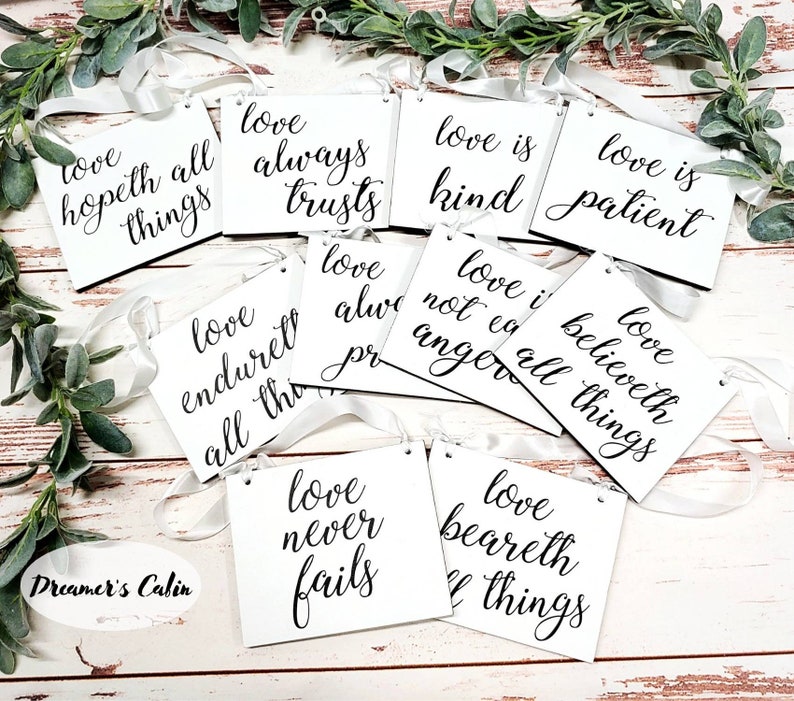 love
hopeth all
things
love
always
trusts
love is
kind
love is
patient
love
endureth
all
love
not
love
believeth
all things
love
never
fails
love
beareth
things
Dreamer's Cabin